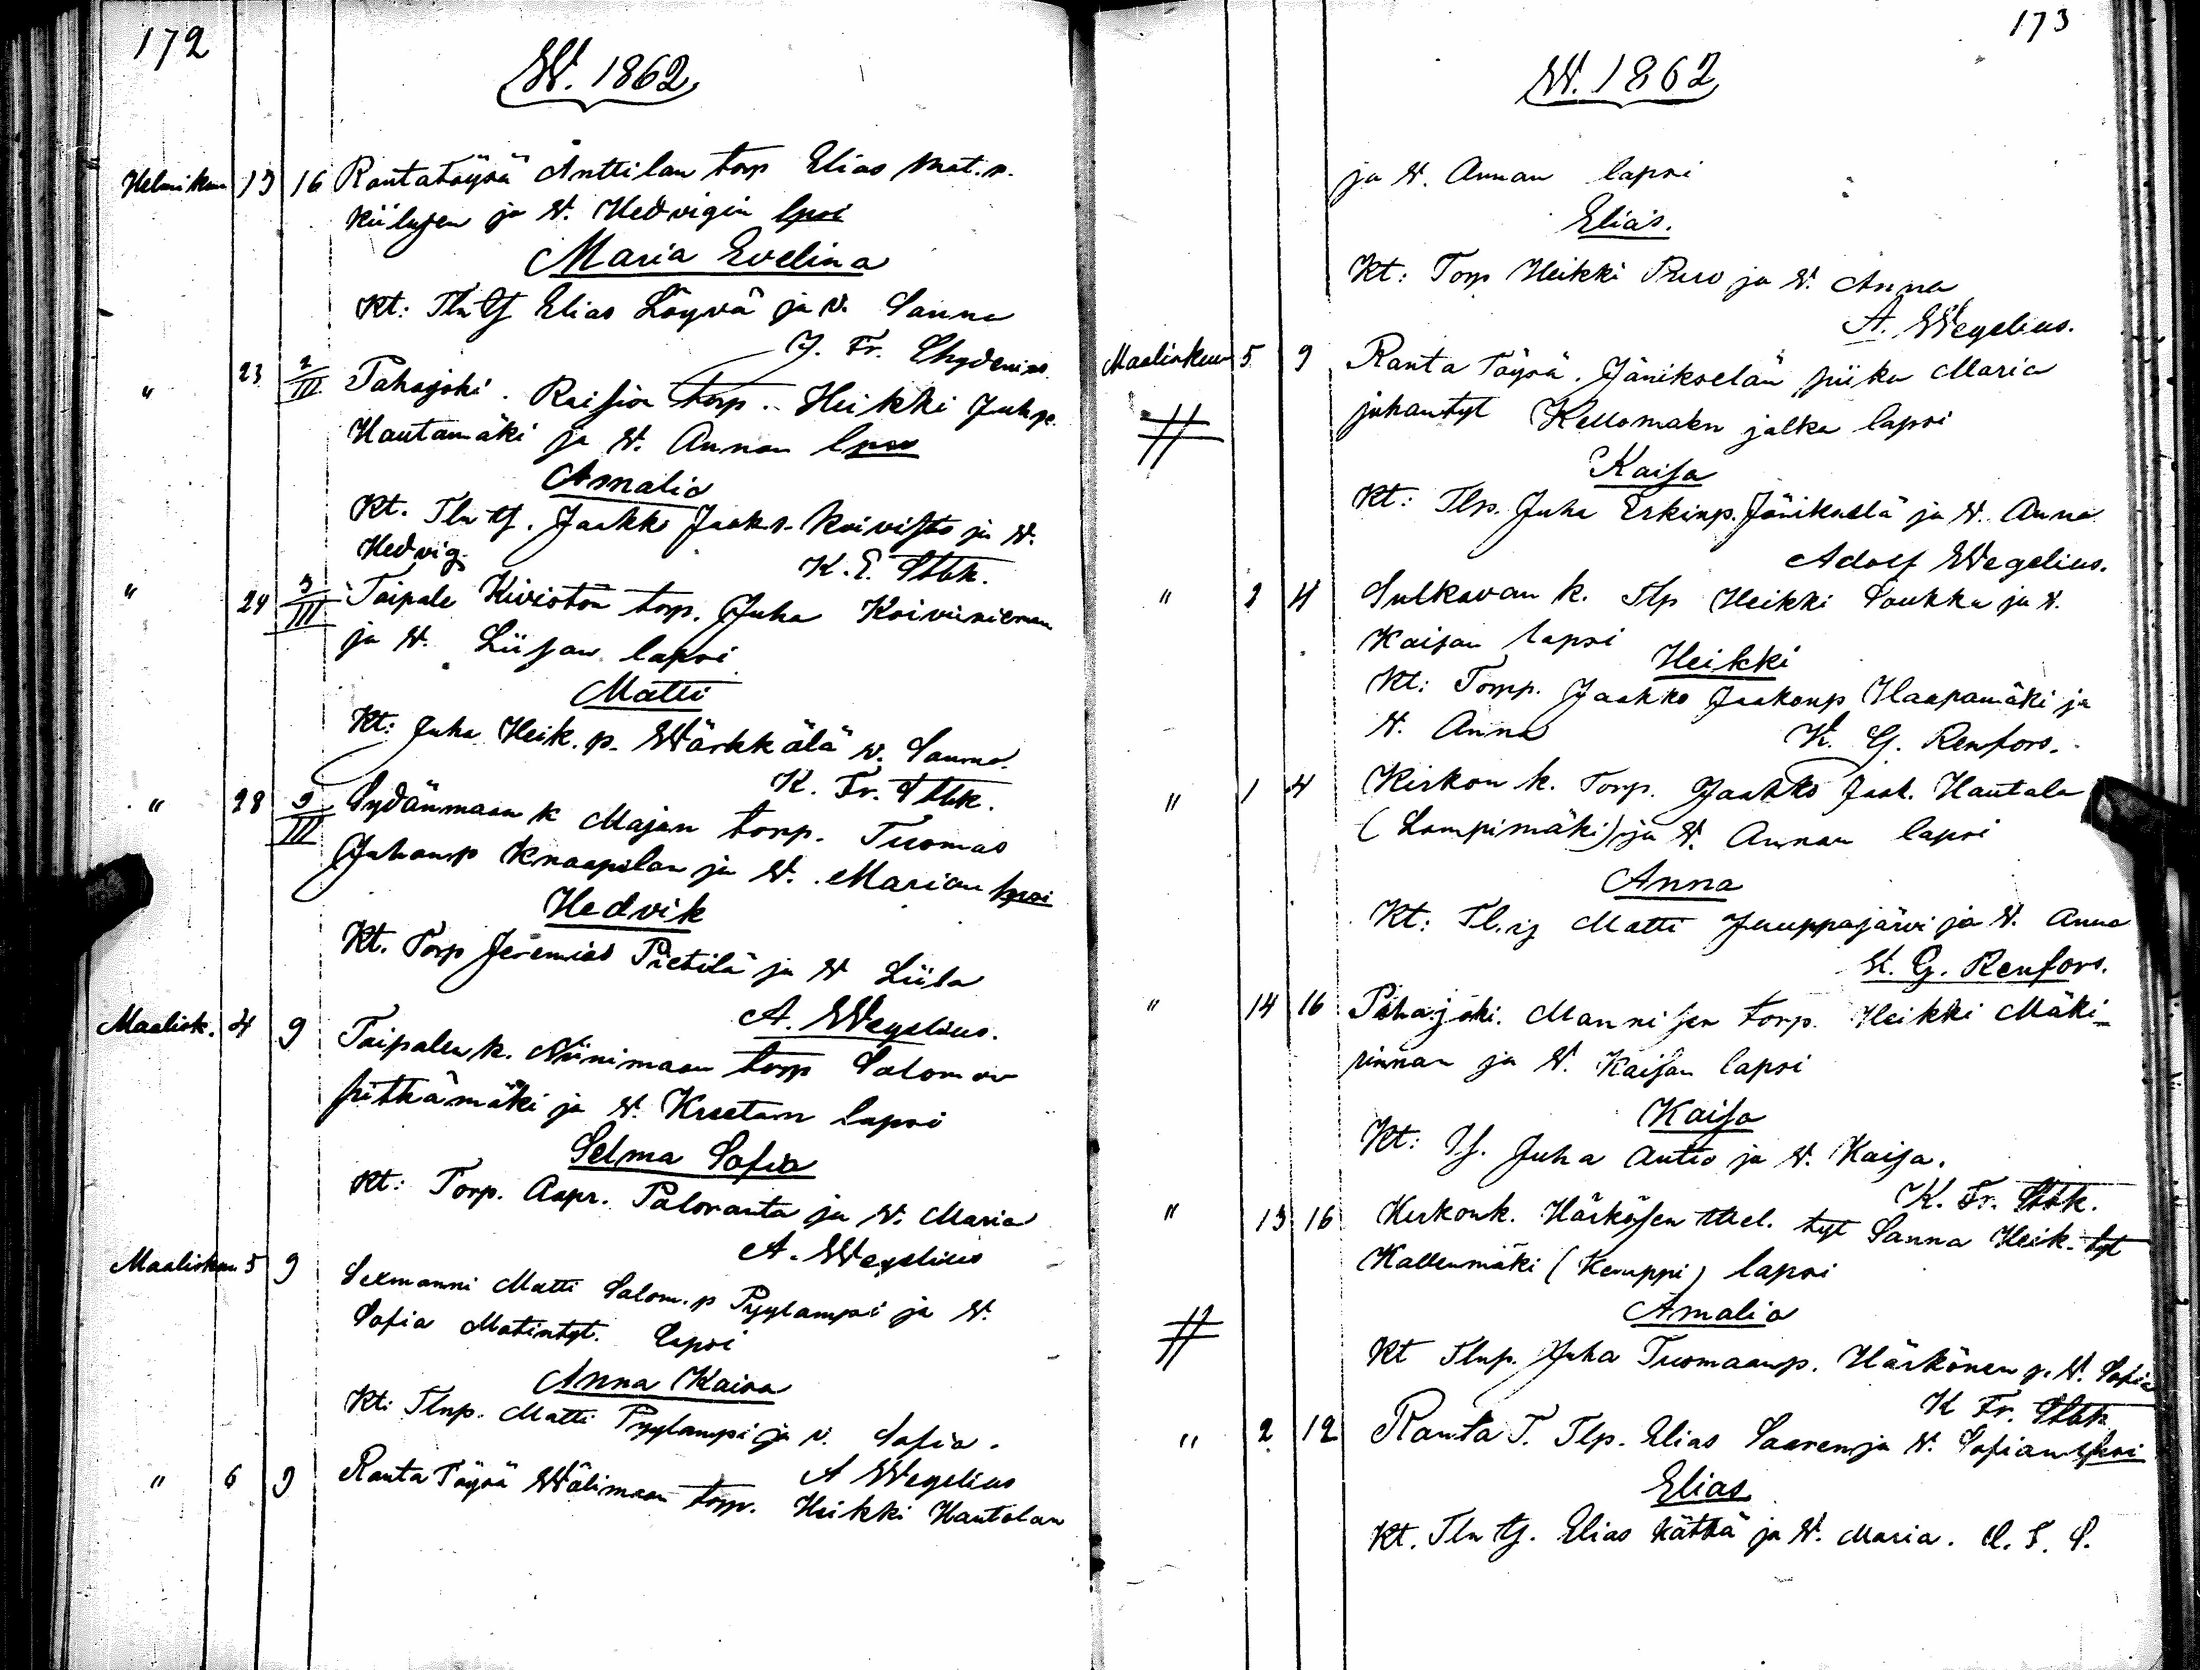 172
W. 1862
Helmikuu 13 16 Rantatöysä Anttilan torp Elias Mat. p.
Kiilusen ja W. Hedvigin lpsi
Maria Evelina
Kt: Tln Elias Löyvä ja v. Sanna
J. Fr. Chydenius
" 23 2/III Pahajoki. Raision torp. Heikki Juh p.
Hautamäki ja W. Annan lpsi
Amalia
Kt. Tln Jaakko Jaak. p. Koivisto ja W.
Hedvig. K. E. Stbk.
" 24 3/III Taipale Kiviston torp. Juha Koiviniemen
ja W. Liisan lapsi
Matti
Kt: Juha Heik. p. Wärkkälä v. Sanna
K. Fr. Stbk.
" 28 9/III Sydänmaan k Majan torp. Tuomas
Juhanp Knaapilan ja W. Marian lpsi
Hedvik
Kt. Torp Jeremias Pietilä ja W Liisa
A. Wegelius.
Maalisk. 4 9 Taipalen k. Niinimaan torp Salomon
pitkämäki ja W. Kreetan lapsi
Selma Sofia
Kt: Torp. Aapr. Paloranta ja W. Maria
A. Wegelius
Maaliskuu 5 9 Sexmanni Matti Salom. p Pyylampi ja W.
Sofia Matintyt. lapsi
Anna Kaisa
Kt: Tlnp. Matti Pyylampi ja v. Sofia.
A Wegelius
" 6 9 Ranta Töysä Wälimaan torp. Heikki Hautalan
173
W. 1862
ja W. Annan lapsi
Elias.
Kt: Torp Heikki Puro ja W. Anna
A. Wegelius.
Maaliskuu 5 9 Ranta Töysä. Jänikselän piika Maria
juhantyt Kellomaen jalka lapsi
Kaisa
Kt: Tlp. Juha Erkinp. Jänikselä ja W. Anna
Adolf Wegelius.
" 2 4 Sulkavan k. Tlp Heikki Soukka ja W.
Kaisan lapsi
Heikki
Kt: Torp. Jaakko Jaakonp Haapamäki ja
W. Anna K. G. Renfors.
" 1 4 Kirkon k. Torp. Jaakko Jaak. Hautala
(Lampimäki) ja W. Annan lapsi
Anna
Kt: Tl. Matti Juuppajärvi ja W. Anna
K. G. Renfors.
" 14 16 Pahajoki. Mannisen torp. Heikki Mäki-
rinnan ja W. Kaisan lapsi
Kaisa
Kt: Juha Autio ja W. Kaisa.
K. Fr. Stbk.
" 13 16 Kirkonk. Härkösen tyt Sanna Heik. tyt
Kallenmäki (Kemppi) lapsi
Amalia
Kt Tlnp. Juha Tuomaanp. Härkönen j. W. Sofia
K Fr. Stbk
" 2 12 Ranta T. Tlp. Elias Saaren ja W. Sofian lpsi
Elias
Kt. Tln Elias Kättä ja W. Maria.